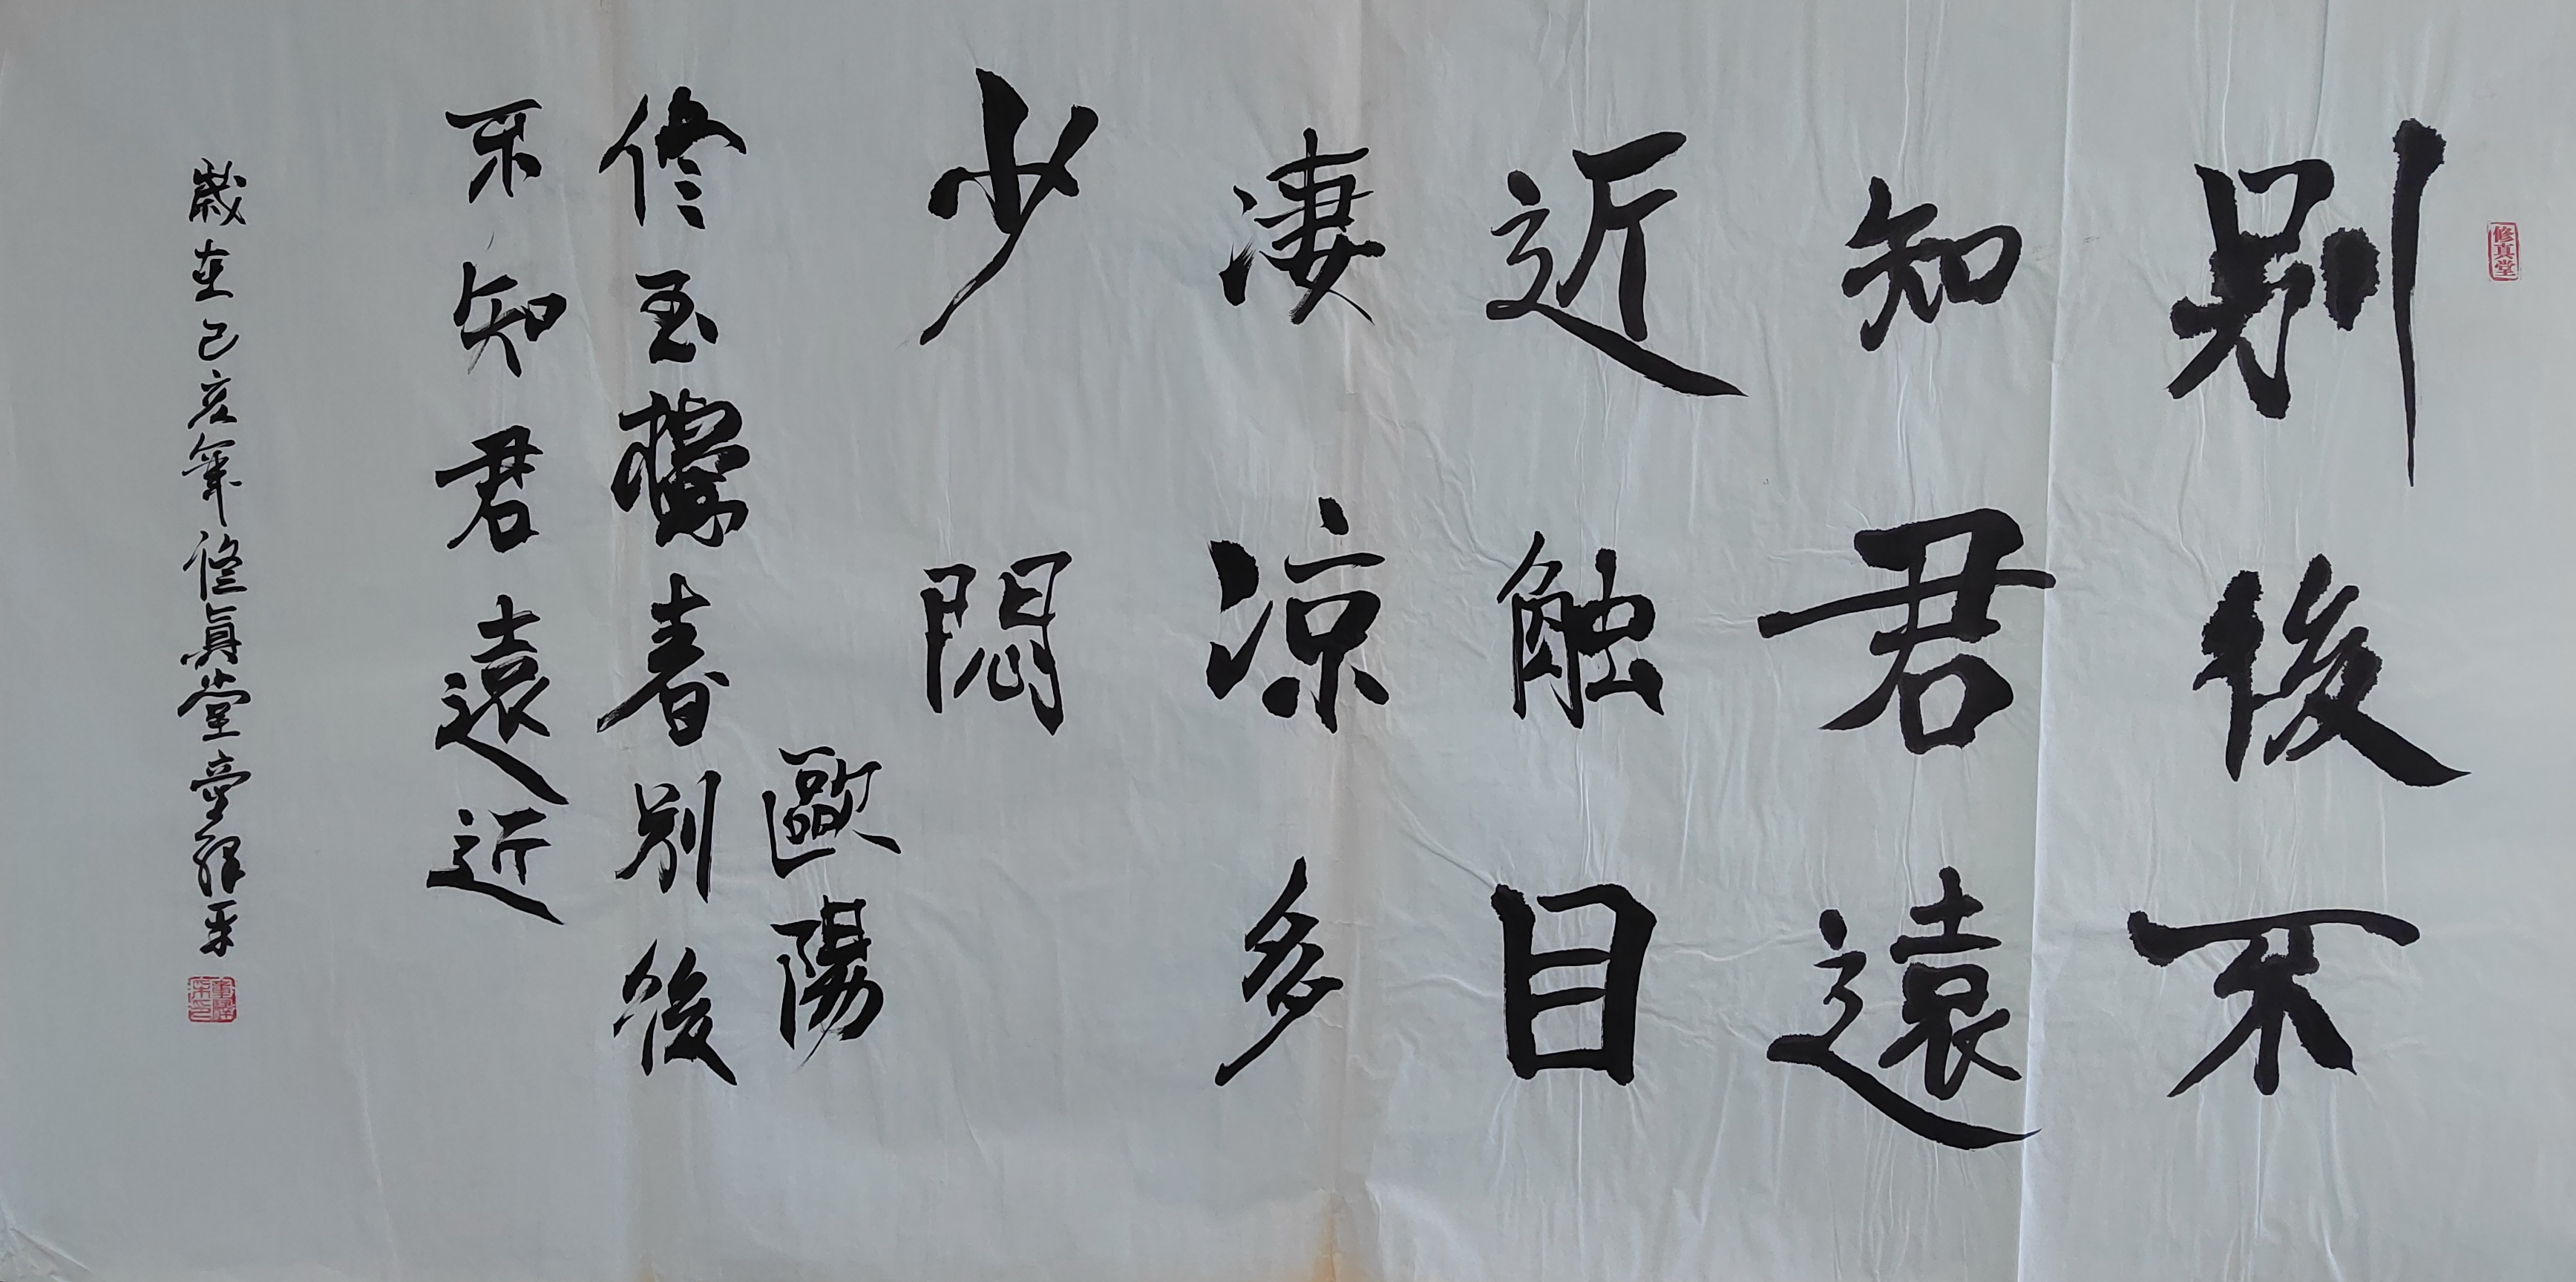 修真堂
别後不
知君遠
近触目
凄凉多
少悶
歐陽
修玉樓春别後
不知君遠近
歲在己亥年修真堂童釋平